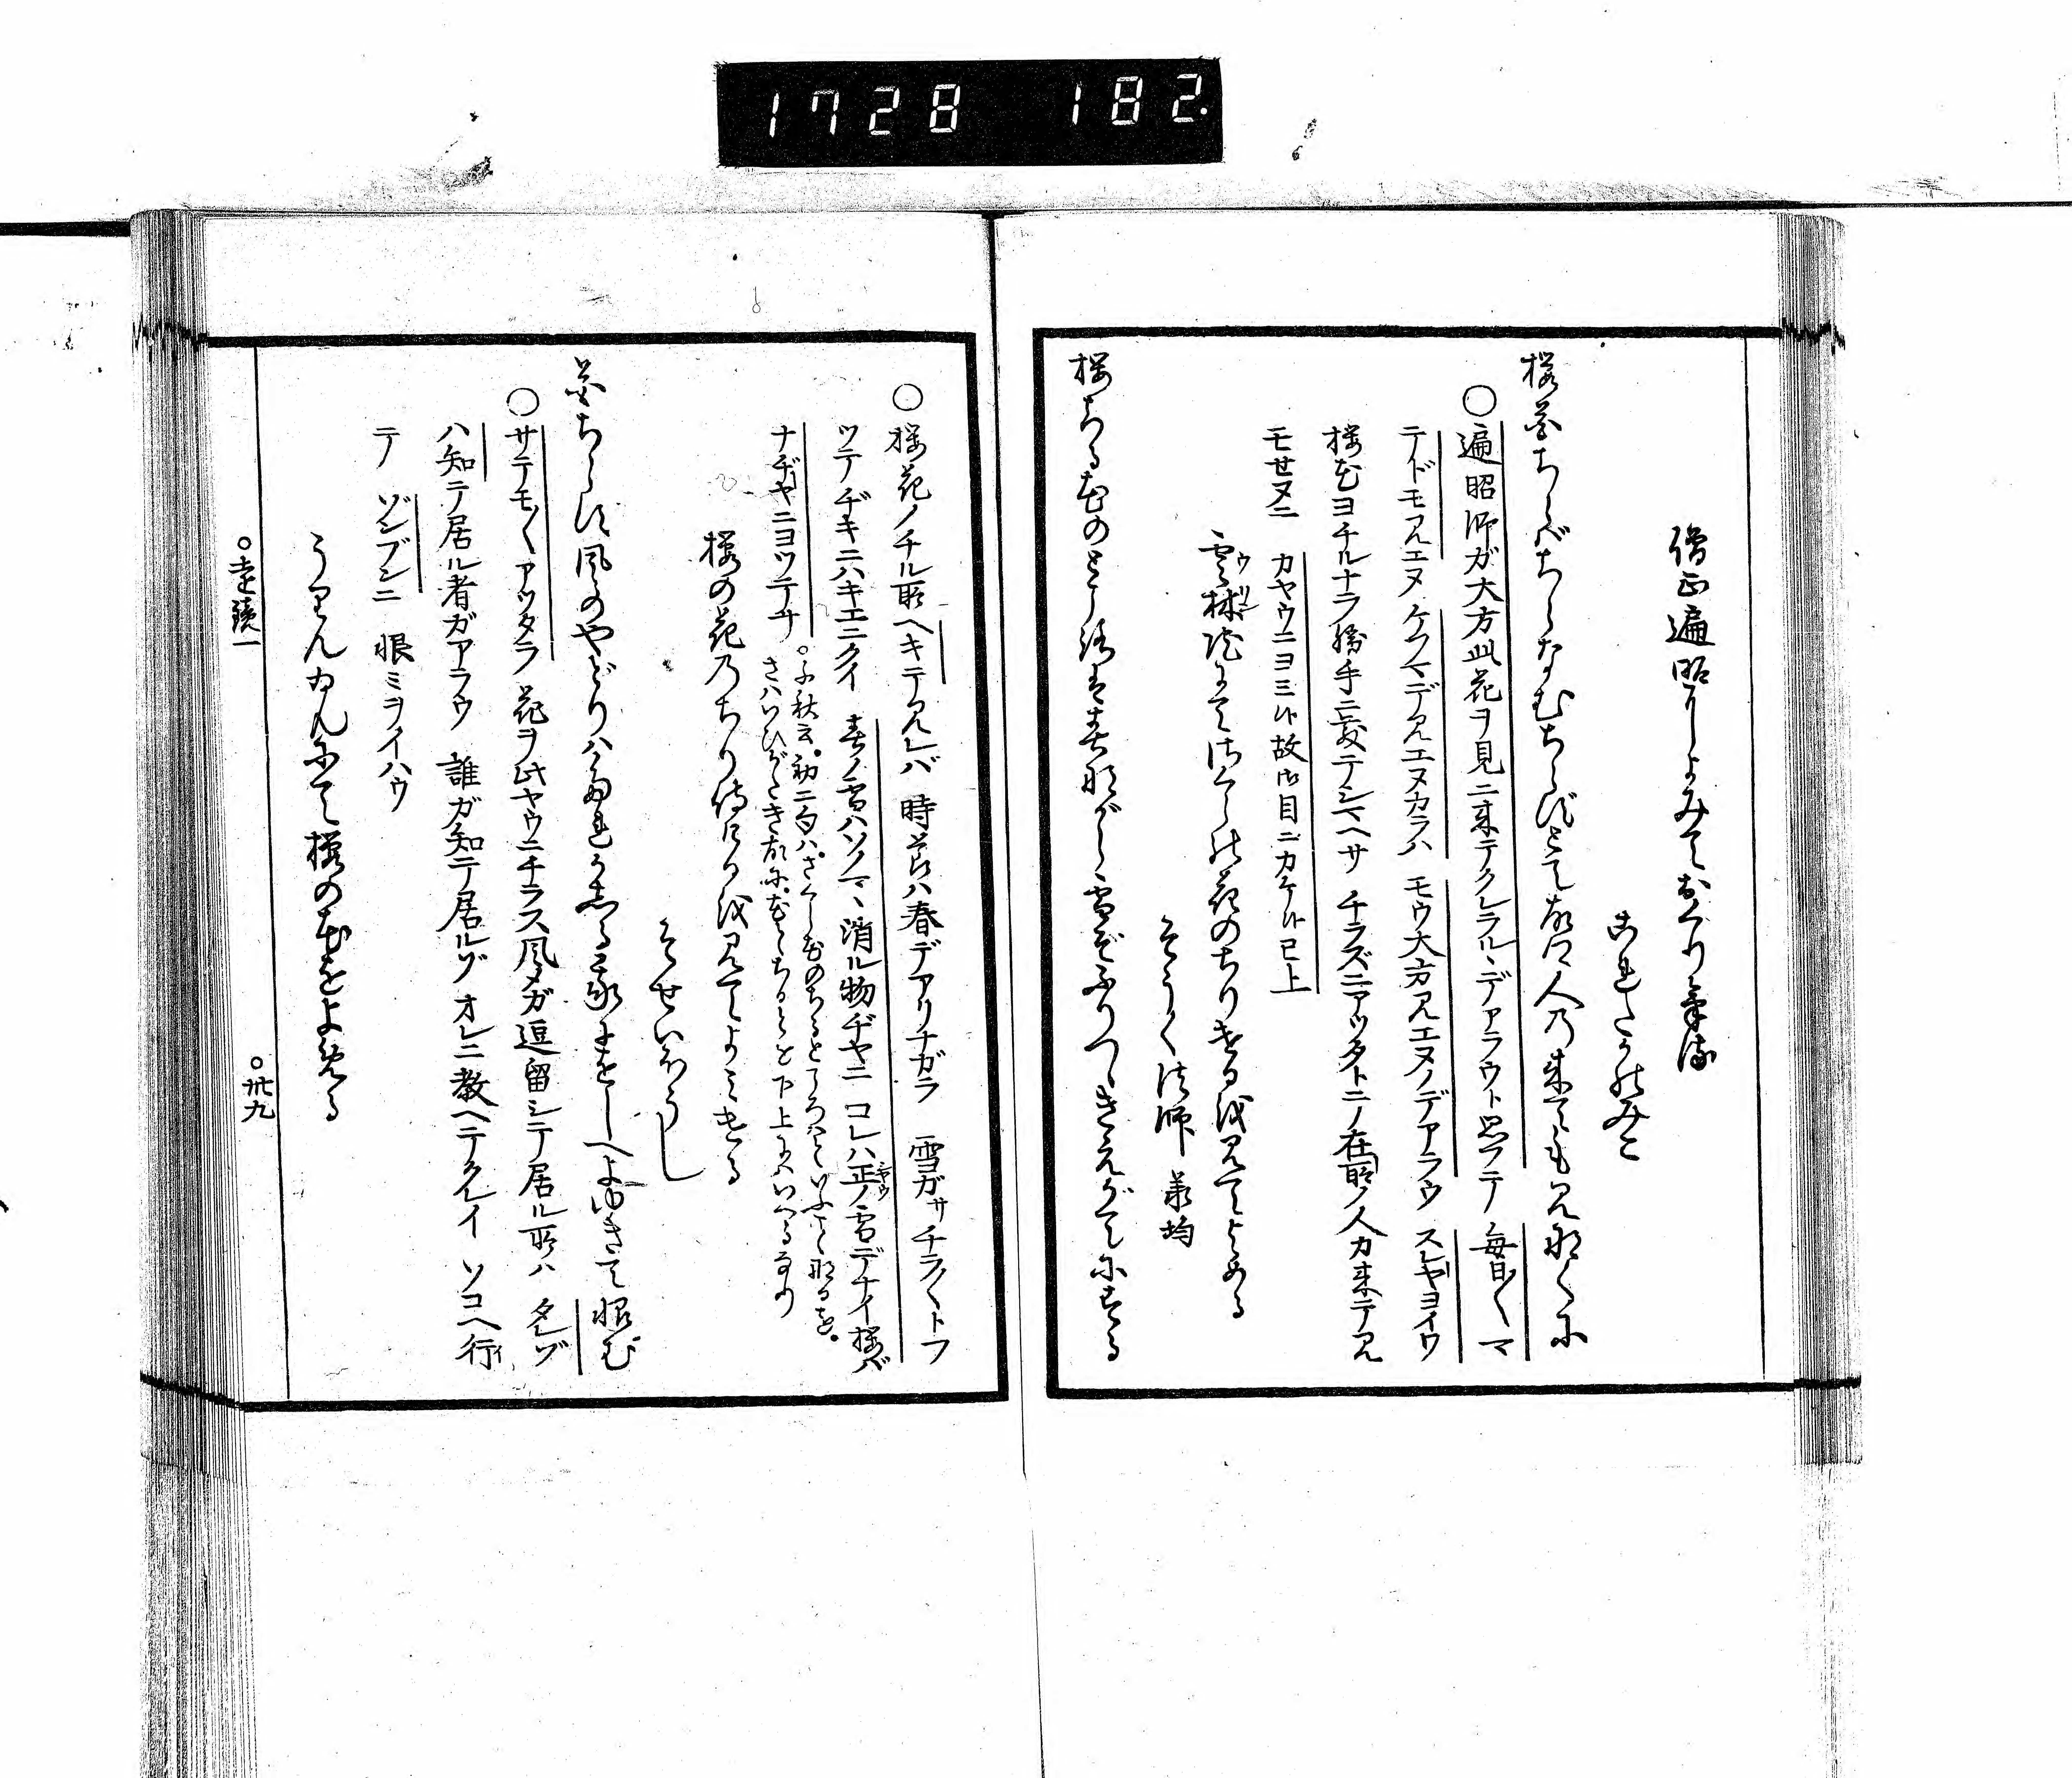 1728 182.
僧正遍昭によみておくりける
これたかのみこ
桜花ちらばちらなむちらずとて故郷人の来ても見なくに
○遍昭師ガ大方此花ヲ見ニ来テクレラルヽデアラウト思フテ 毎日〱マ
テドモ見エヌ ケフマデ見エヌカラハ モウ大方見エヌノデアラウ スレヤヨイワ
桜花ヨチルナラ勝手ニ散テシマヘサ チラズニアツタトニノ在所ノ人カ来テ見
モセヌニ カヤウニヨミ候故御目ニカケ候已上
雲林院にてさくらの花のちりけるを見てよめる
そうく法師 承均
桜ちる花のところは春ながら雪ぞふりつゝきえがてにする
○桜花ノチル所ヘキテ見レバ 時節ハ春デアリナガラ 雪ガサチラ〱トフ
ツテヂキニハキエニクイ 春ノ雪ハソノマヽ消ル物ヂヤニ コレハ正ノ雪デナイ桜バ
ナヂヤニヨツテサ
○千秋云。初二句は。さくら花のちるところはといふ
桜の花のちり侍けるを見てよみける
そせいほうし
花ちらす風のやどりはたれかしる我にをしへよゆきて恨む
○サテモ〱アツタラ 花ヲ此ヤウニチラス風メガ逗留シテ居ル所ハ タレゾ
ハ知テ居ル者ガアラウ 誰ガ知テ居ルゾ オレニ教ヘテクレイ ソコヘ行
テ ゾンブンニ 恨ミヲイハウ
うりんゐんにて桜の花をよめる
○遠鏡一 ○卅九